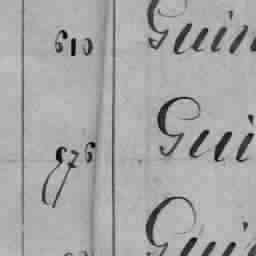 610 Guin
676 Gui
Guin